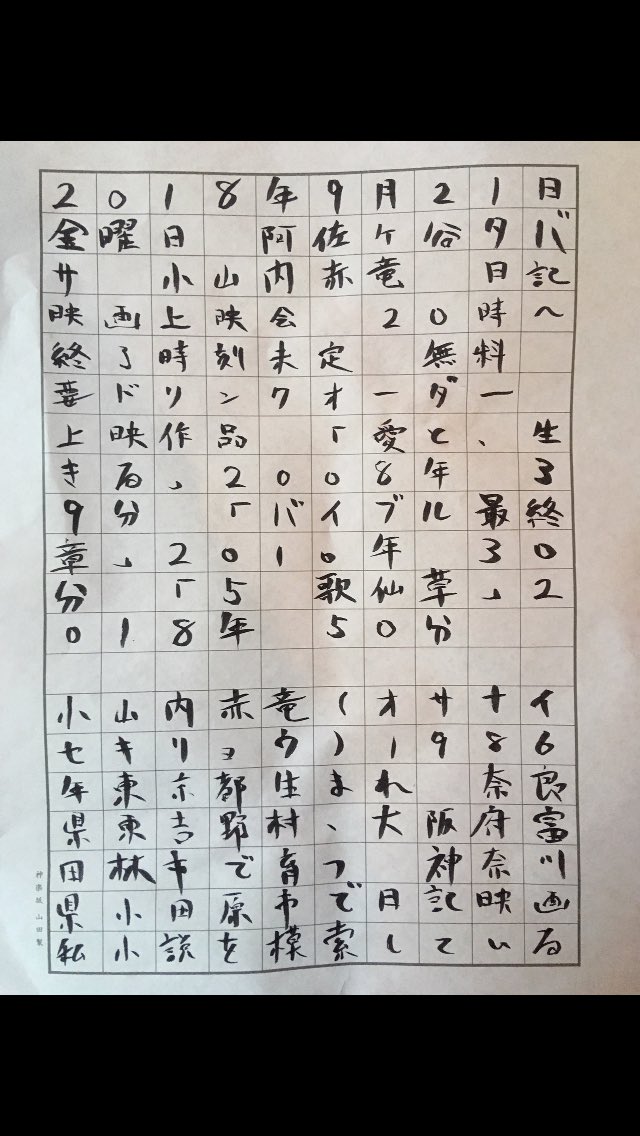 2018年9月21日
金曜日 阿佐ケ谷タバ
サ 小山内赤竜 日記
映画上映会 20時へ
終了時刻未定 無料
要ドリンクオーダー
上映作品 「愛と、生
きる」2008年 3
9分 「バイブル最終
章」2010年 30
分 「5 歌仙草」2
018年 50分
小山内赤竜(オサナイ
セキリョウ)1986
年東京都生まれ 奈良
県東吉野村、大阪府富
田林市で育つ 神奈川
県小田原市で日記映画
私小説を模索している
神楽坂 山田製